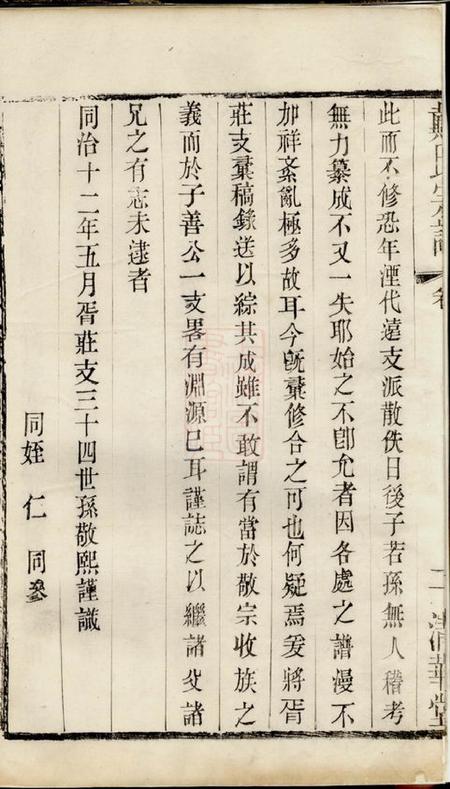 此而不修恐年湮代遠支派散佚日後子若孫無人稽考
無力纂成不又一失耶始之不卽允者因各處之譜漫不
加祥紊亂極多故耳今旣彙修合之可也何疑焉爰將胥
莊支彙稿錄送以綜其成雖不敢謂有當於敬宗收族之
義而於子善公一支畧有淵源已耳謹誌之以繼諸父諸
兄之有志未逮者
同治十二年五月胥莊支三十四世孫敬熙謹識
同姪仁同參